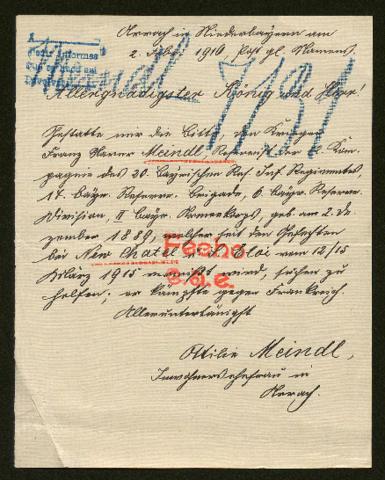 in Niederbayern am
2. 1916, Post gl. Namens.
Allergnädigster König und Herr!
7131
Gestatte mir die Bitte, den Krieger
Franz Xaver Meindl, Reservist der Kom-
pagnie des 20. Bayrischen Res. Inf. Regimentes,
Bayr. Reserve Brigade, 6. Bayr. Reserve
Division, II bayr. Armeekorps, geb. am 2. De-
zember 1889, welcher seit den Gefechten
bei Neu Chatel vom 12/15
März 1915 vermißt wird, suchen zu
helfen; er kämpfte gegen Frankreich.
Alleruntertänigst
Fache
s.d.e.
Ottilie Meindl,
Inwohnersehefrau in